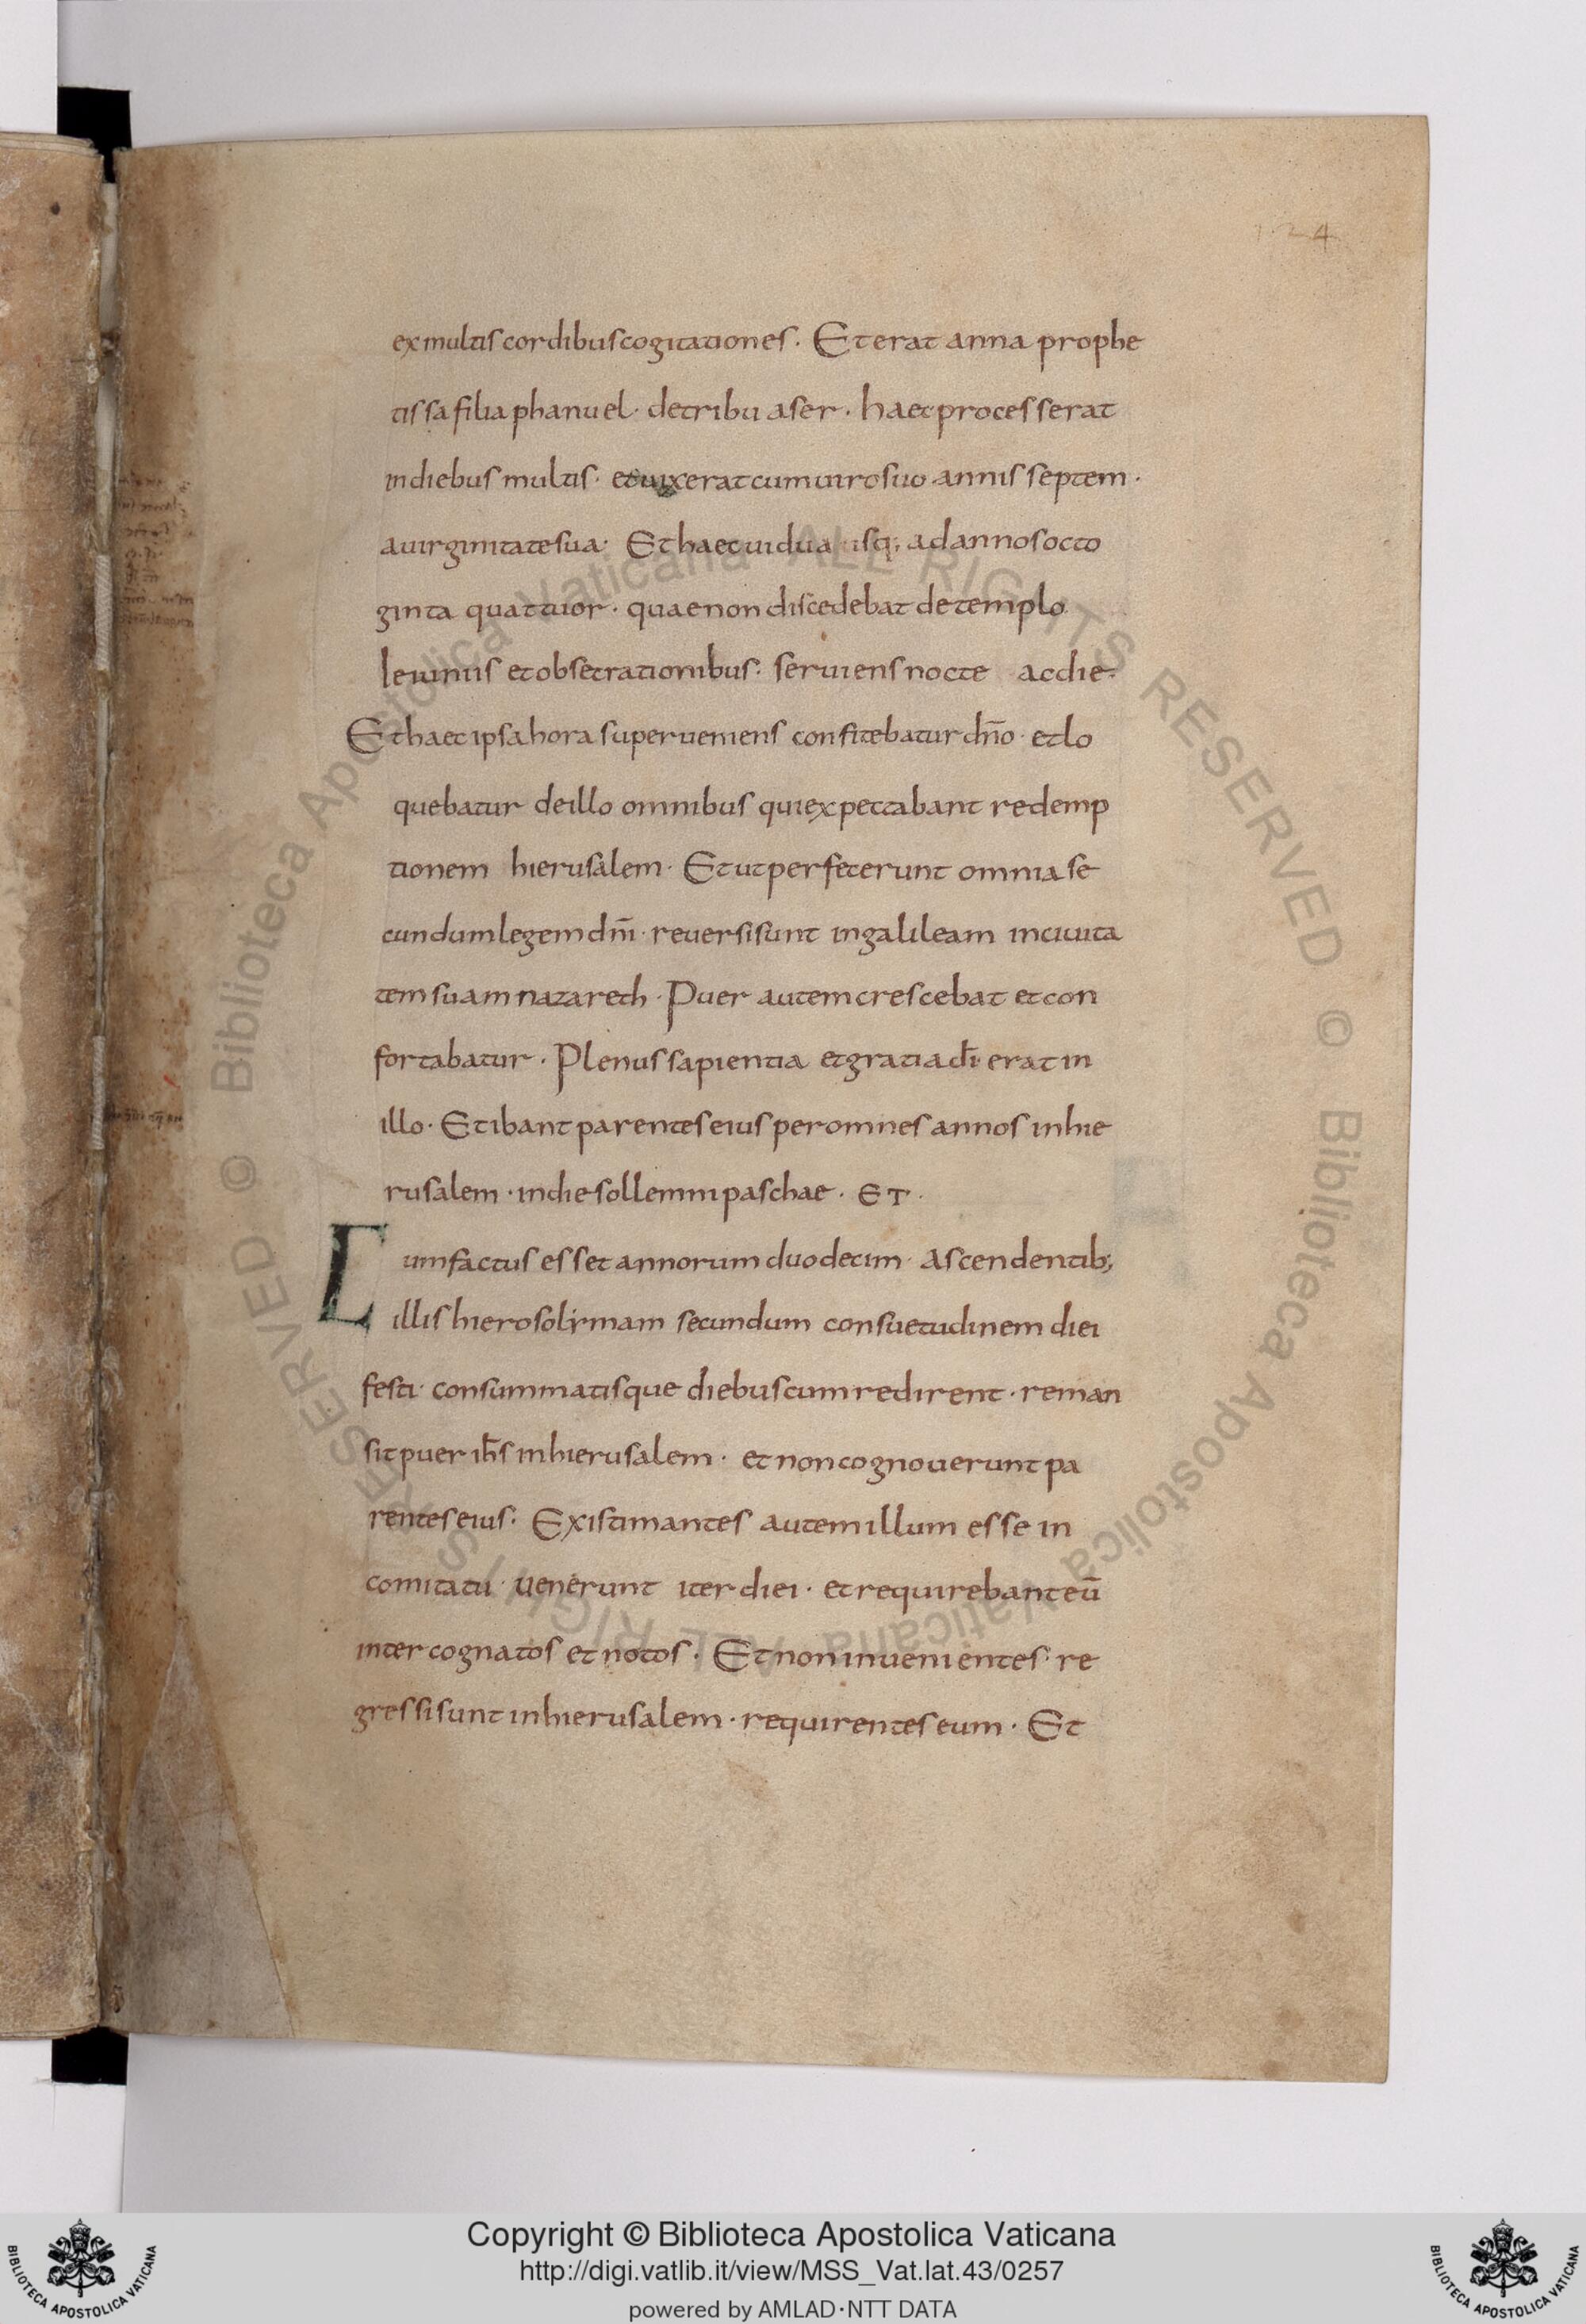 124
ex multis cordibus cogitationes. Et erat anna prophe
tissa filia phanuel· de tribu aser. haec processerat
in diebus multis· et uixerat cum uiro suo annis septem·
a uirginitate sua· Et haec uidua usq; ad annos octo
ginta quattuor· quae non discedebat de templo
Ieiuniis et obsecrationibus· seruiens nocte ac die·
Et haec ipsa hora superueniens confitebatur dño· et lo
quebatur de illo omnibus qui expectabant redemp
tionem hierusalem· Et ut perfecerunt omnia se
cundum legem dñi· reuersi sunt in galileam in ciuita
tem suam nazareth· Puer autem crescebat et con
fortabatur· Plenus sapientia et gratia dī erat in
illo· Et ibant parentes eius per omnes annos in hie
rusalem· in die sollemni paschae· ET·
Cum factus esset annorum duodecim· Ascendentib;
illis hierosolymam secundum consuetudinem diei
festi· consummatisque diebus cum redirent· reman
sit puer ihs̄ in hierusalem· et non cognouerunt pa
rentes eius· Existimantes autem illum esse in
comitatu· uenerunt iter diei· et requirebant eū
inter cognatos et notos· Et non inuenientes· re
gressi sunt in hierusalem· requirentes eum· Et
© Biblioteca Apostolica Vaticana ALL RIGHTS RESERVED © Biblioteca Apostolica Vaticana ALL RIGHTS RESERVED
Copyright © Biblioteca Apostolica Vaticana
http://digi.vatlib.it/view/MSS_Vat.lat.43/0257
powered by AMLAD·NTT DATA
BIBLIOTECA APOSTOLICA VATICANA
BIBLIOTECA APOSTOLICA VATICANA